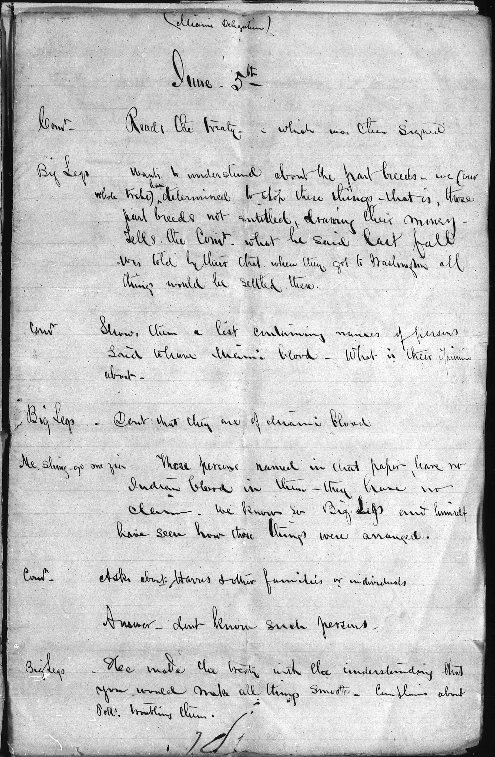 (Miami Delegation)
June 5th
Com'r - Reads the treaty - which was then signed
Big Legs wants to understand about the part breeds - we (our
whole tribe) have determined to stop these things - that is, those
part breeds not entitled, drawing their money -
Tells the Com'r what he said last fall
was told by them that when they got to Washington all
things would be settled then.
Com'r Shows them a list containing names of persons
said to have Miami blood - What is their opinion
about -
Big Legs - Dont that they are of Miami blood
Me, shing, go me zia Those persons named in that paper, have no
Indian blood in them - they have no
claim - we know so Big Legs and himself
have seen how these things were arranged.
Com'r - Asks about Harris & other families or individuals
Answer - dont know such persons -
Big Legs - He made the treaty with the understanding that
you would make all things smooth - Complains about
troubling them.